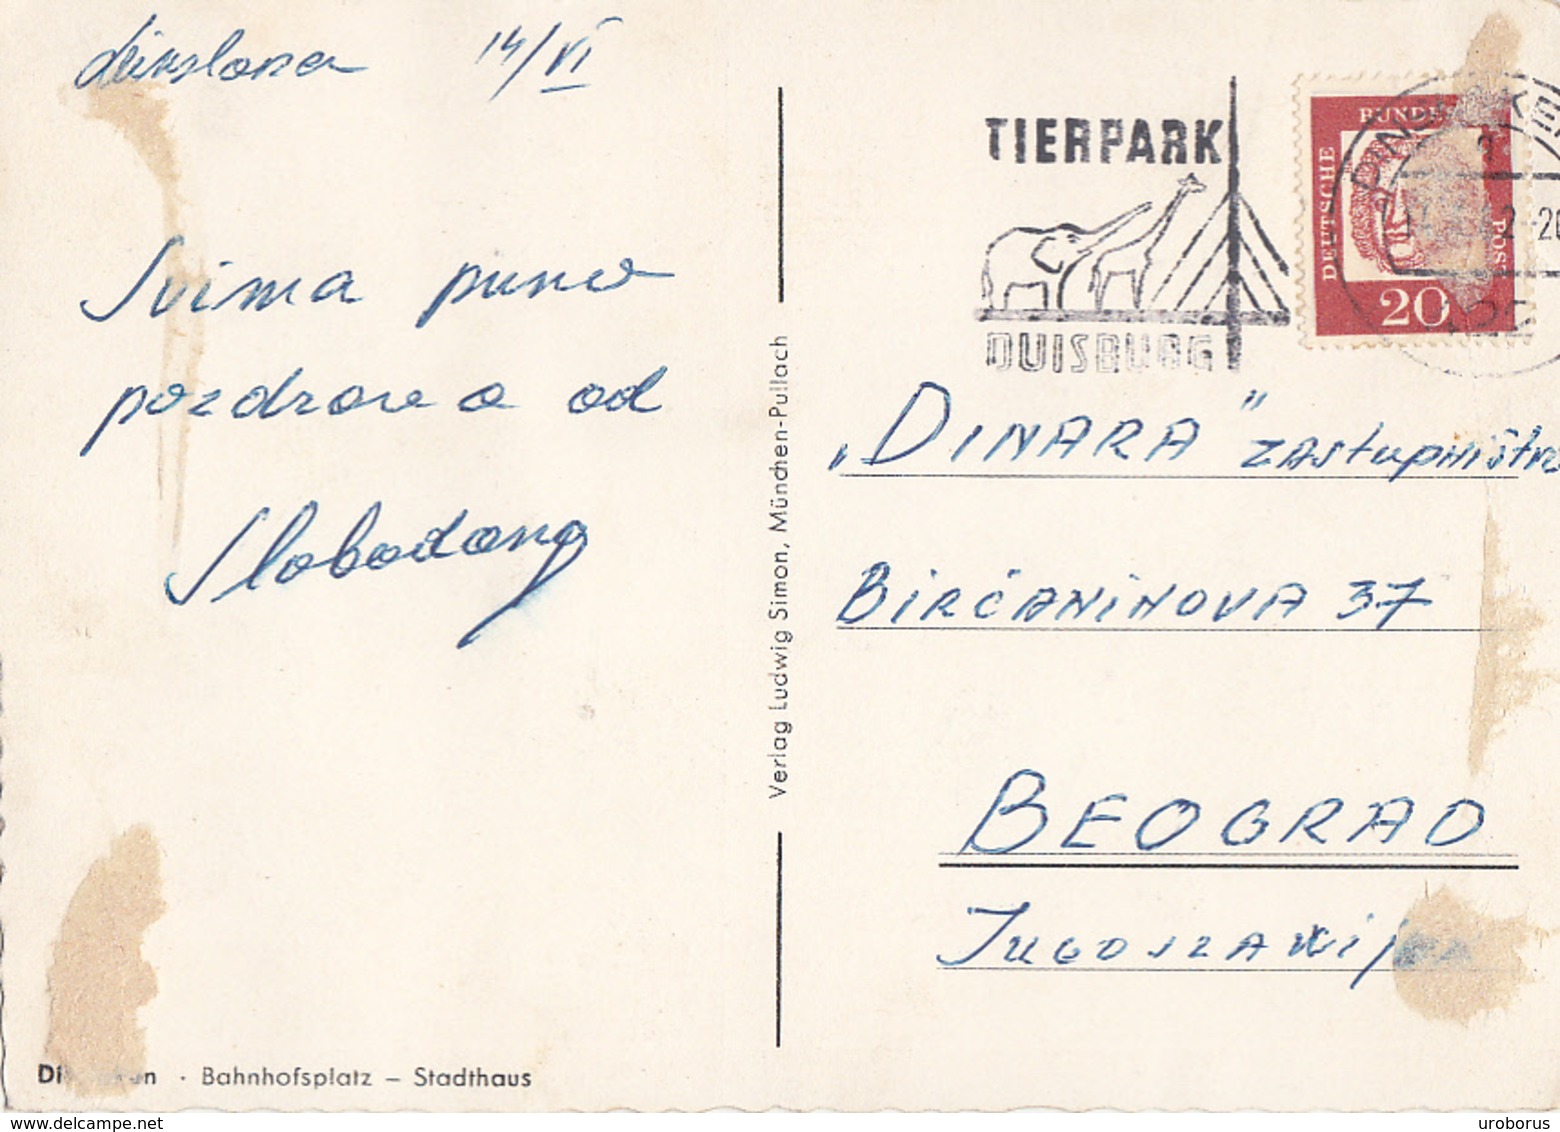 14/VI
Svima puno
pozdrava od
Slobodana
TIERPARK
DUISBURG
DEUTSCHE
BUNDES
POST
20
„DINARA" zastupništvo
BIRČANINOVA 37
BEOGRAD
JUGOSLAVIJA
Verlag Ludwig Simon, München-Pullach
Bahnhofsplatz – Stadthaus
www.delcampe.net
uroborus